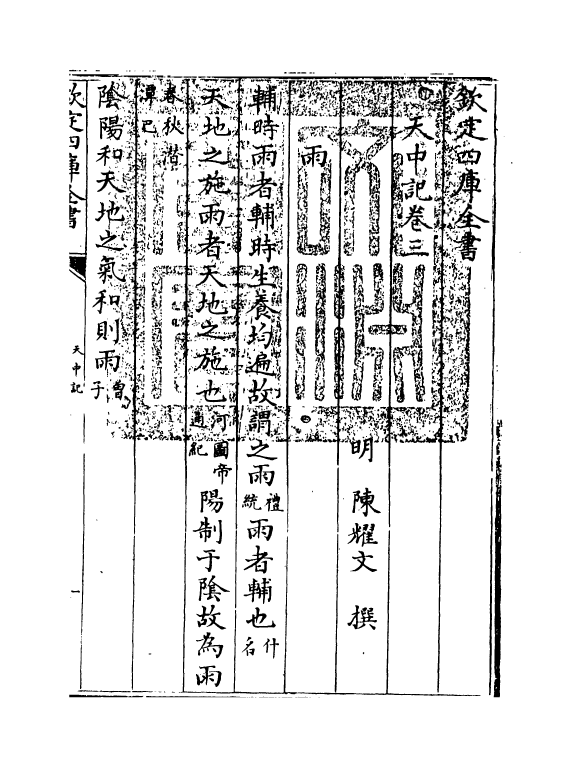 欽定四庫全書
天中記卷三
明 陳耀文 撰
雨
輔時雨者輔時生養均遍故謂之雨禮統雨者輔也什名
天地之施雨者天地之施也河圖帝通紀陽制于陰故為雨
春秋潛潭巴
陰陽和天地之氣和則雨曾子
欽定四庫全書
天中記
一